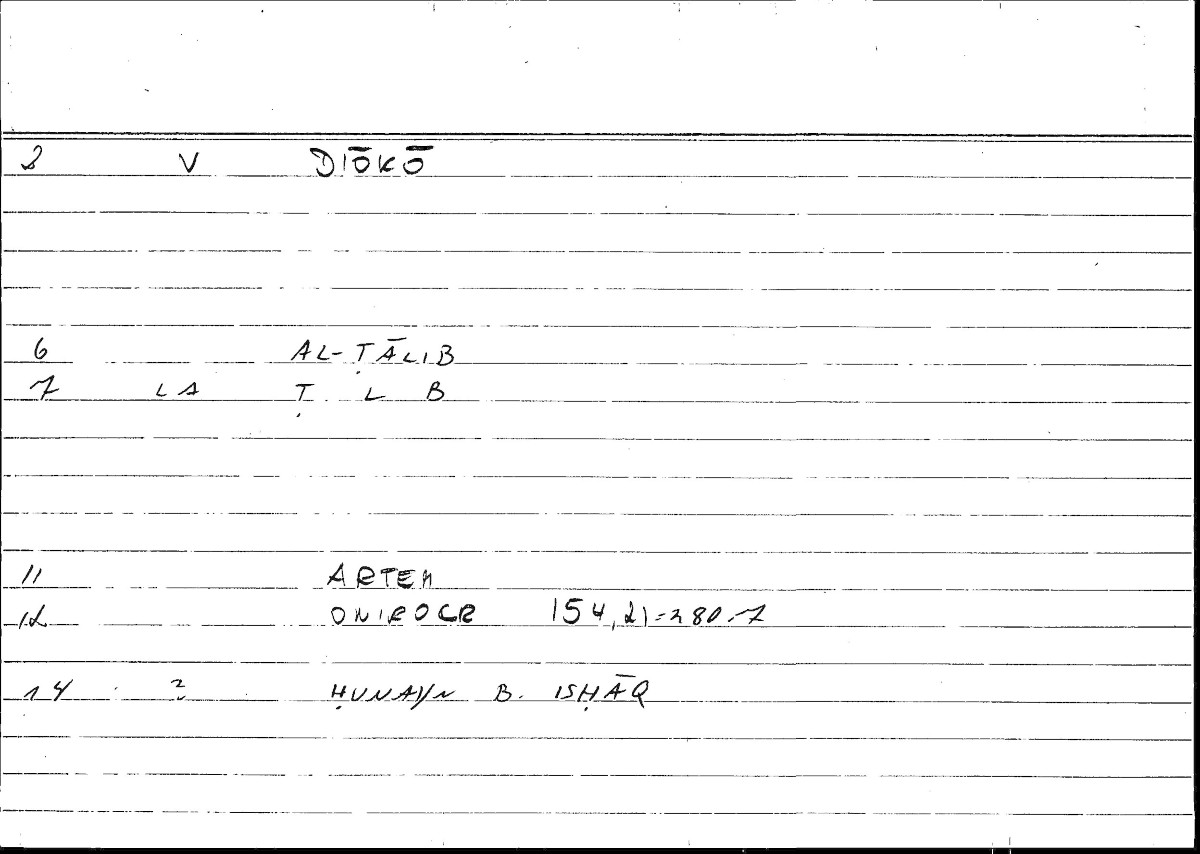 2 V DIŌKŌ
6 AL-ṬĀLIB
7 LA Ṭ L B
11 ARTEM
12 ONIROCR 154,21=280.7
14 2 ḤUNAYN B. ISḤĀQ